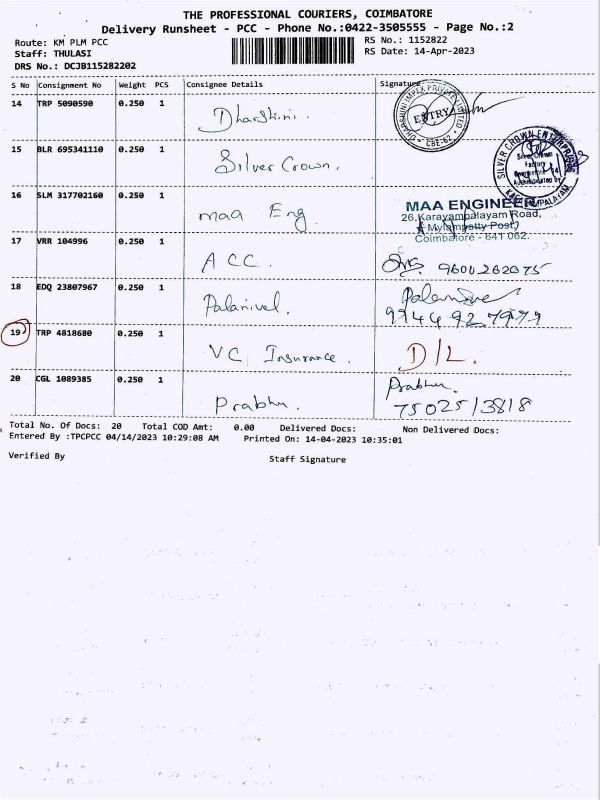 THE PROFESSIONAL COURIERS, COIMBATORE
Delivery Runsheet - PCC - Phone No.:0422-3505555 - Page No.:2
Route: KM PLM PCC
RS No.: 1152822
Staff: THULASI
RS Date: 14-Apr-2023
DRS No.: DCJB115282202
S No Consignment No Weight PCS Consignee Details Signature
14 TRP 5090590 0.250 1 Dharshini.
DHARSHINI IMPEX PRIVATE LIMITED
ENTRY
CBE-62
15 BLR 695341110 0.250 1 Silver Crown.
SILVER CROWN ENTERPRISES
Silver Crown
Factory
16 SLM 317702160 0.250 1 maa Eng.
MAA ENGINEE
26,Karayampalayam Road,
Mylampatty Post)
Coimbatore - 641 062.
17 VRR 104996 0.250 1 A CC. 9600262075
18 EDQ 23807967 0.250 1 Palanivel.
19 TRP 4818680 0.250 1 VC Insurance. D/L.
20 CGL 1089385 0.250 1 Prabhu. Prabhu.
7502513818
Total No. Of Docs: 20 Total COD Amt: 0.00 Delivered Docs: Non Delivered Docs:
Entered By :TPCPCC 04/14/2023 10:29:08 AM Printed On: 14-04-2023 10:35:01
Verified By Staff Signature